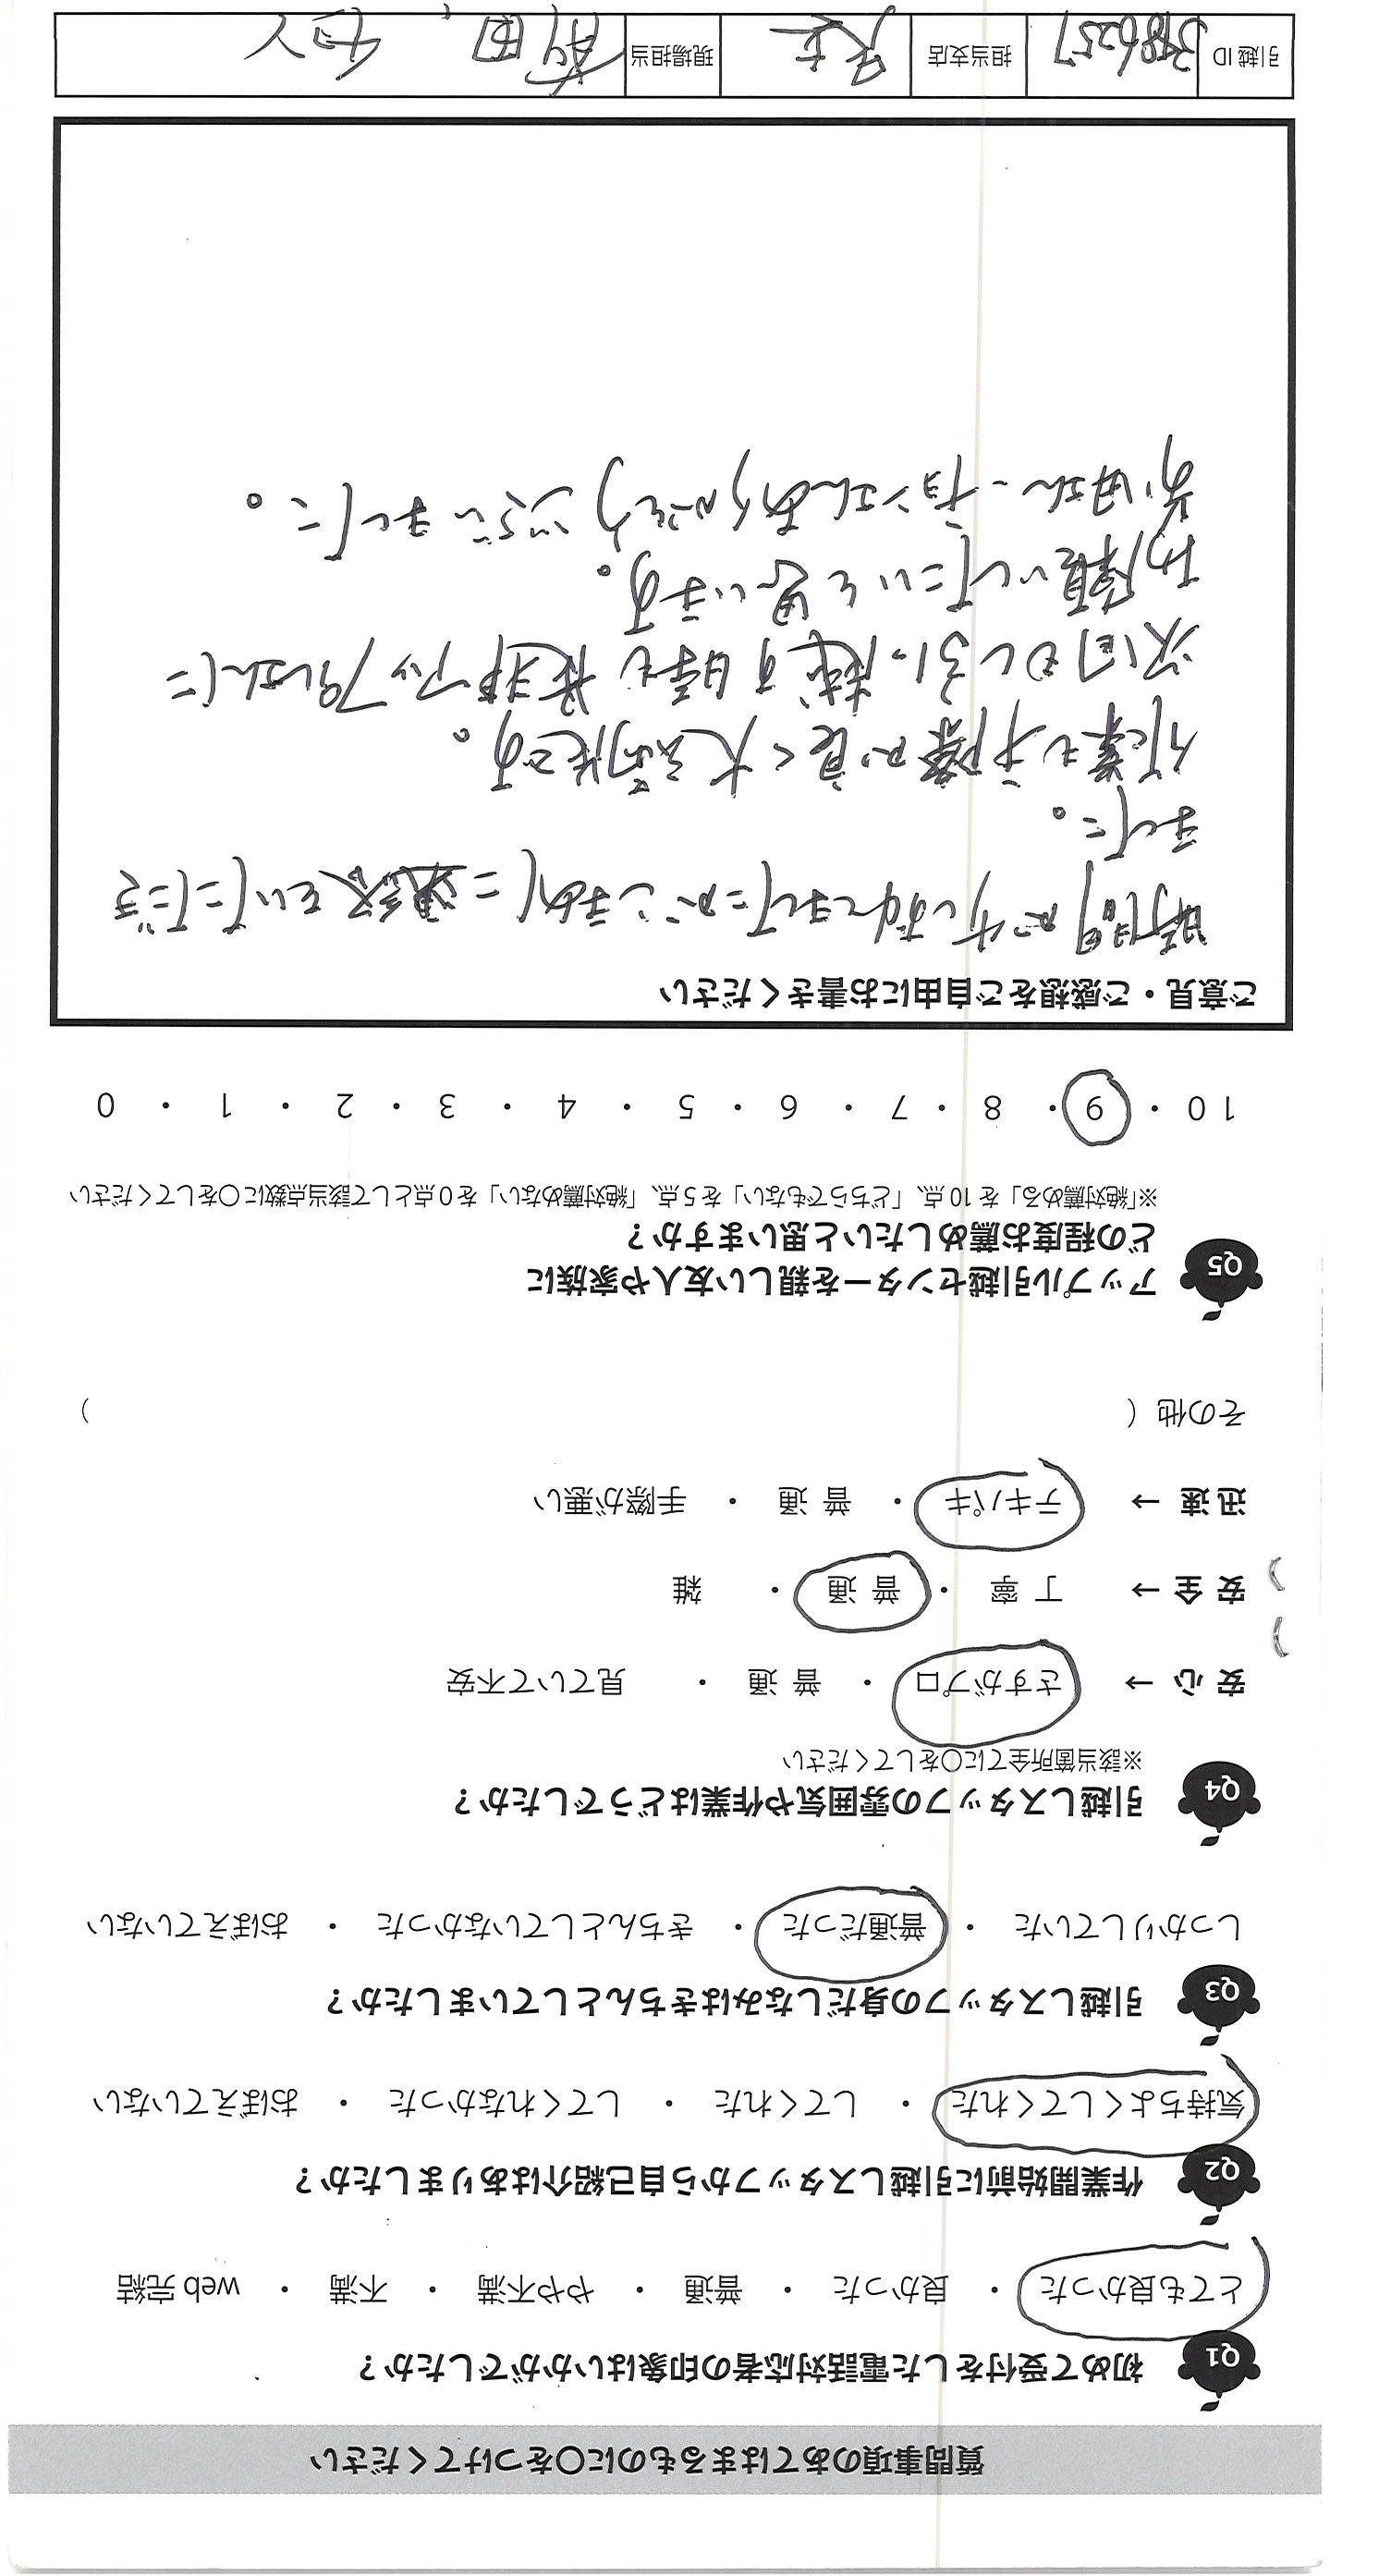 質問事項のあてはまるものに○をつけてください
Q1 初めて受付をした電話対応者の印象はいかがでしたか？
とても良かった ・ 良かった ・ 普通 ・ やや不満 ・ 不満 ・ web 完結
Q2 作業開始前に引越しスタッフから自己紹介はありましたか？
気持ちよくしてくれた ・ してくれた ・ してくれなかった ・ おぼえていない
Q3 引越しスタッフの身だしなみはきちんとしていましたか？
しっかりしていた ・ 普通だった ・ きちんとしていなかった ・ おぼえていない
Q4 引越しスタッフの雰囲気や作業はどうでしたか？
※該当箇所全てに○をしてください
安 心 → さすがプロ ・ 普 通 ・ 見ていて不安
安 全 → 丁 寧 ・ 普 通 ・ 雑
迅 速 → テキパキ ・ 普 通 ・ 手際が悪い
その他 （ ）
Q5 アップル引越センターを親しい友人や家族に
どの程度お薦めしたいと思いますか？
※「絶対薦める」を 10 点、「どちらでもない」を 5 点、「絶対薦めない」を 0 点として該当点数に○をしてください
10 ・ 9 ・ 8 ・ 7 ・ 6 ・ 5 ・ 4 ・ 3 ・ 2 ・ 1 ・ 0
ご意見・ご感想をご自由にお書きください
時間が少し押してましたがこまめに連絡をいただき
ました。
作業も手際が良く大満足です。
次回もし引っ越す時も是非アップルさんに
お願いしたいと思います。
前田さん、チョンさんありがとうございました。
引越 ID 3986257 担当支店 現場担当 前田、チョン